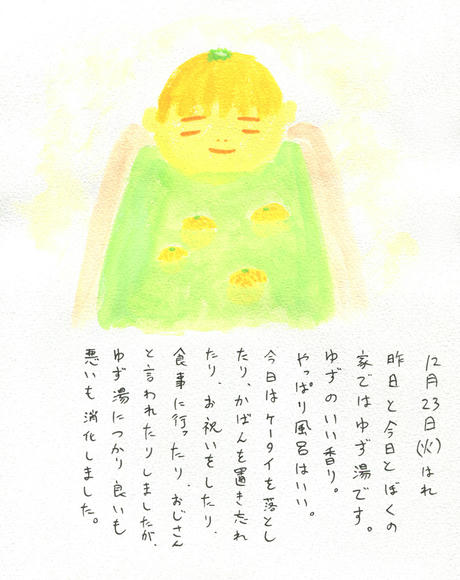 12月23日(火)はれ
昨日と今日とぼくの
家ではゆず湯です。
ゆずのいい香り。
やっぱり風呂はいい。
今日はケータイを落とし
たり、かばんを置き忘れ
たり、お祝いをしたり、
食事に行ったり、おじさん
と言われたりしましたが、
ゆず湯につかり良いも
悪いも消化しました。